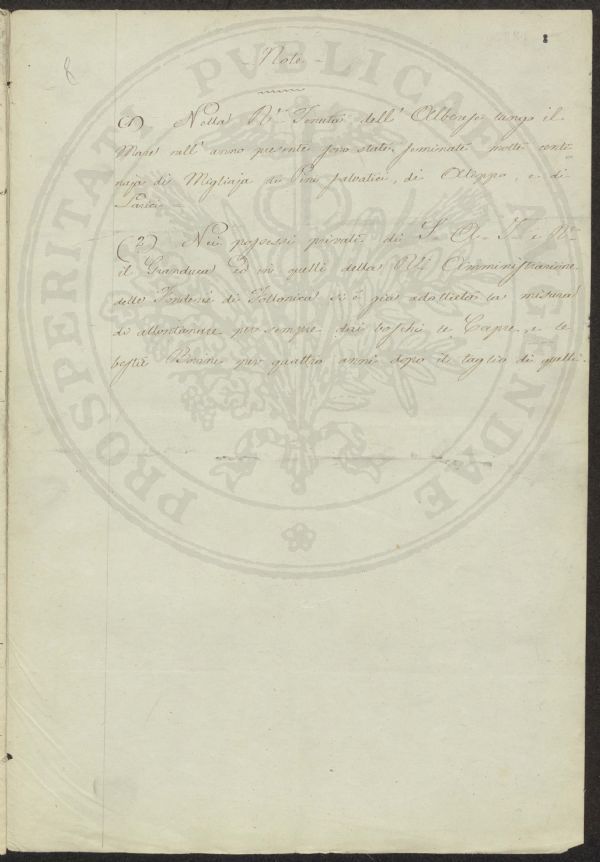 8
8
- Note -
(1) Nella R.e Tenuta dell' Alberese lungo il
Mare nell' anno presente sono state seminate molte centi=
naja di Migliaja di Pini salvatici, di Aleppo, e di
Larici -
(2) Nei possessi privati di S. A. I. e R.
il Granduca ed in quelli della R. Amministrazione
delle Fonderie di Follonica si è già adottata la misura
di allontanare per sempre dai boschi le Capre, e le
bestie Bovine per quattro anni dopo il taglio di quelli.
PROSPERITATI PVBLICAE AVGENDAE